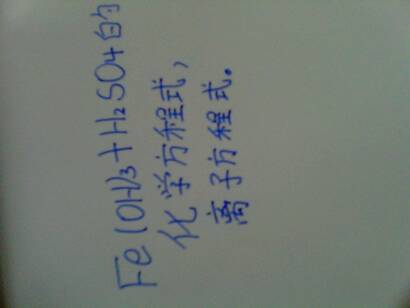 Fe(OH)3+H2SO4的
化学方程式，
离子方程式。